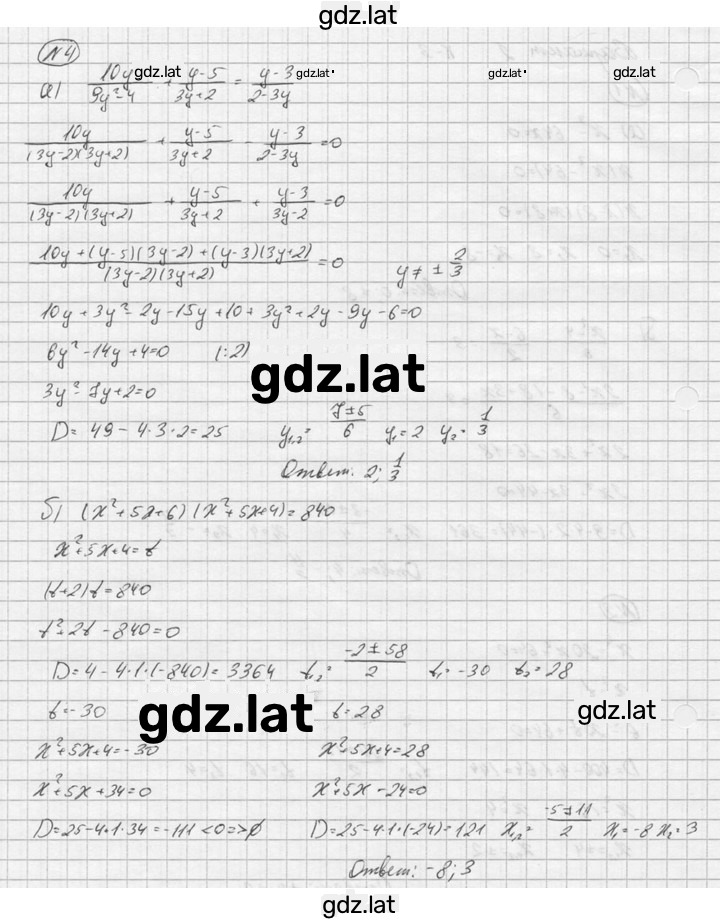 gdz.lat
№4
gdz.lat gdz.lat gdz.lat gdz.lat
а) 10y/(9y²-4) + (y-5)/(3y+2) = (y-3)/(2-3y)
10y/((3y-2)(3y+2)) + (y-5)/(3y+2) - (y-3)/(2-3y) = 0
10y/((3y-2)(3y+2)) + (y-5)/(3y+2) + (y-3)/(3y-2) = 0
(10y+(y-5)(3y-2)+(y-3)(3y+2))/((3y-2)(3y+2)) = 0 y ≠ ± 2/3
10y+3y²-2y-15y+10+3y²+2y-9y-6=0
6y²-14y+4=0 (:2)
gdz.lat
3y²-7y+2=0
D = 49 - 4·3·2 = 25 y₁,₂ = (7±5)/6 y₁=2 y₂=1/3
Ответ: 2; 1/3
б) (x²+5x+6)(x²+5x+4)=840
x²+5x+4=t
(t+2)t=840
t²+2t-840=0
D=4-4·1·(-840)=3364 t₁,₂=(-2±58)/2 t₁=-30 t₂=28
t=-30 t=28
gdz.lat gdz.lat
x²+5x+4=-30 x²+5x+4=28
x²+5x+34=0 x²+5x-24=0
D=25-4·1·34=-111<0=>∅ D=25-4·1·(-24)=121 x₁,₂=(-5±11)/2 x₁=-8 x₂=3
Ответ: -8; 3
gdz.lat